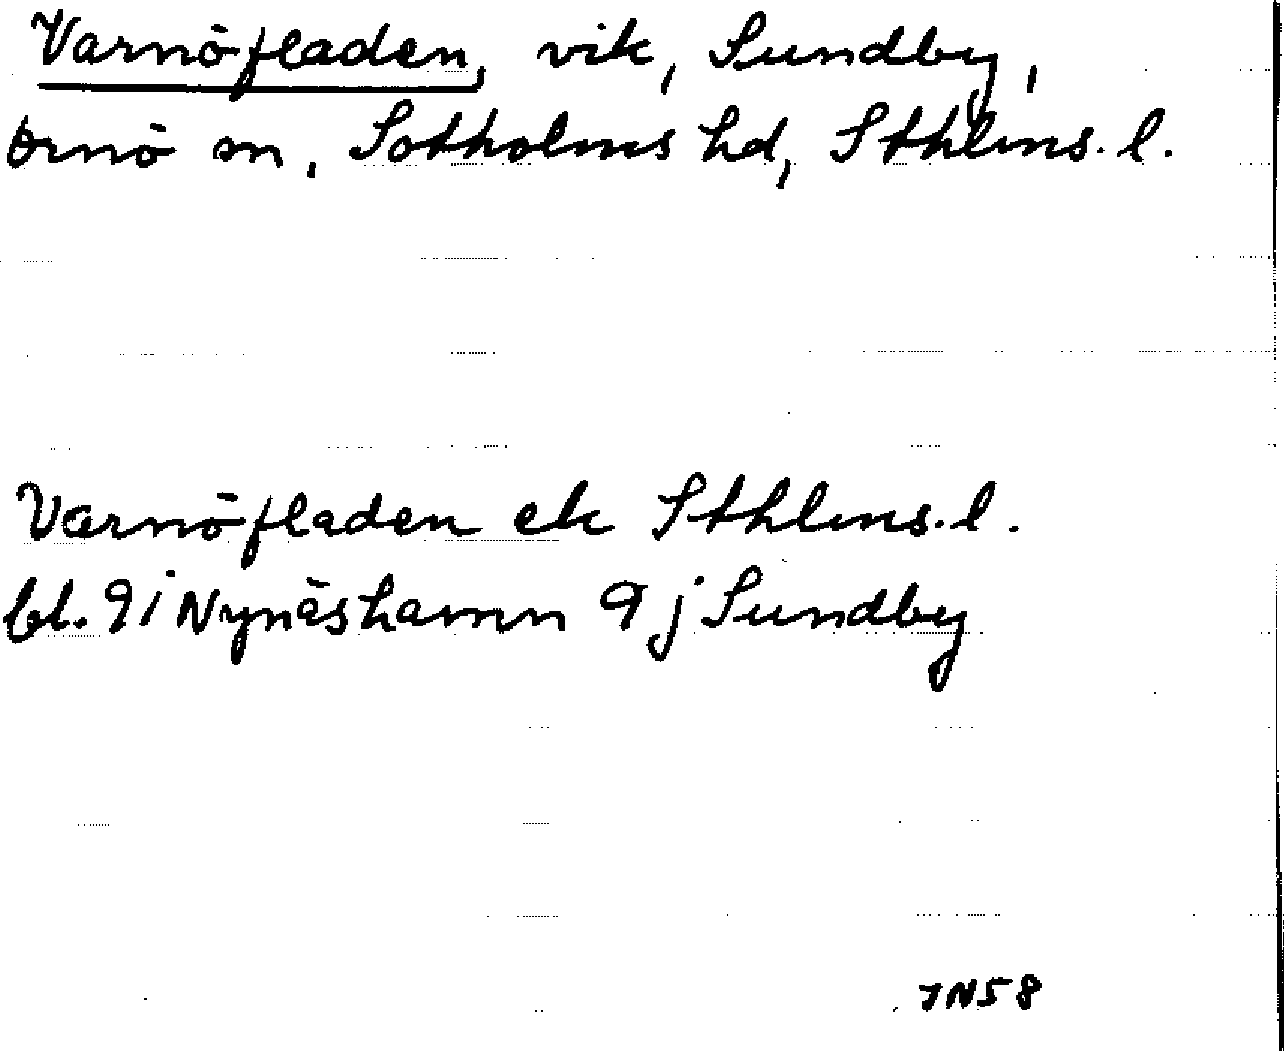 Varnöfladen, vik, Sundby,
Ornö sn, Sotholms hd, Sthlms. l.
Varnöfladen ek Sthlms. l.
bl. 9i Nynäshamn 9j Sundby
JN58